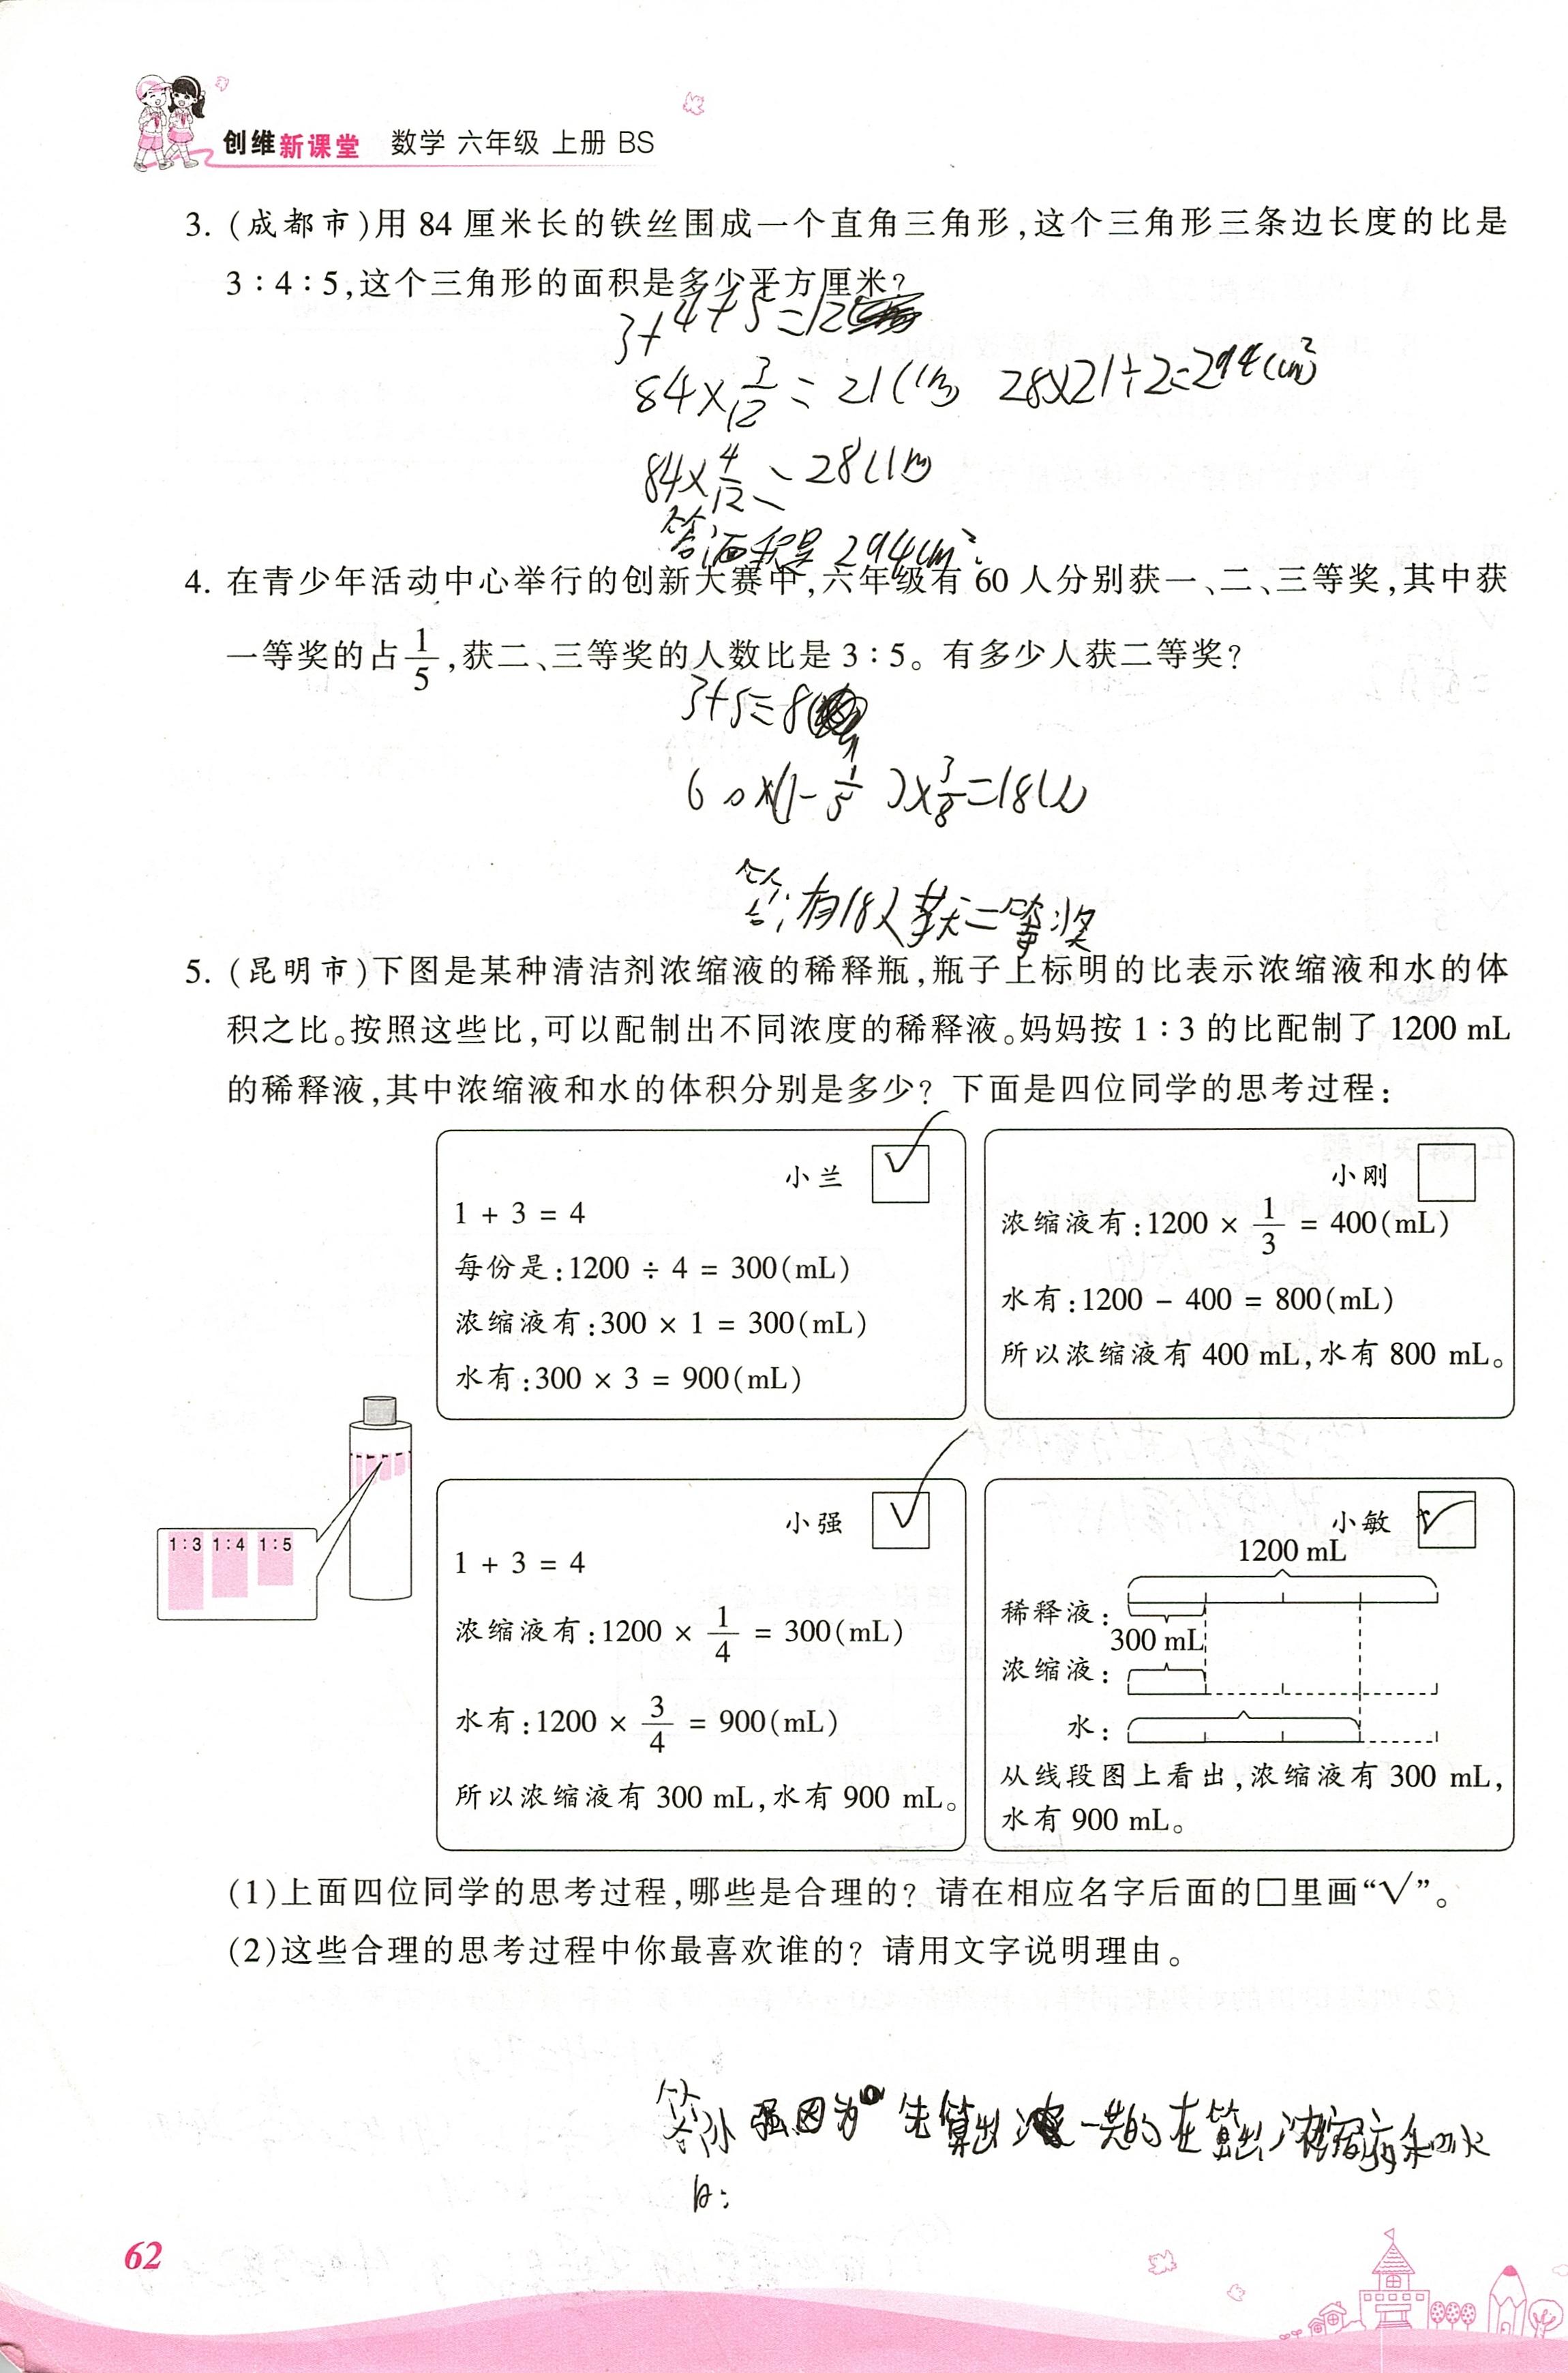 创维新课堂 数学 六年级 上册 BS
3. (成都市)用 84 厘米长的铁丝围成一个直角三角形,这个三角形三条边长度的比是
3∶4∶5,这个三角形的面积是多少平方厘米?
3+4+5=12
84×3/12=21(cm) 28×21÷2=294(cm²)
84×4/12=28(cm)
答:面积是294cm²
4. 在青少年活动中心举行的创新大赛中,六年级有 60 人分别获一、二、三等奖,其中获
一等奖的占1/5,获二、三等奖的人数比是 3∶5。有多少人获二等奖?
3+5=8
60×(1-1/5)×3/8=18(人)
答:有18人获二等奖
5. (昆明市)下图是某种清洁剂浓缩液的稀释瓶,瓶子上标明的比表示浓缩液和水的体
积之比。按照这些比,可以配制出不同浓度的稀释液。妈妈按 1∶3 的比配制了 1200 mL
的稀释液,其中浓缩液和水的体积分别是多少? 下面是四位同学的思考过程:
小兰 ✓
1 + 3 = 4
每份是:1200 ÷ 4 = 300(mL)
浓缩液有:300 × 1 = 300(mL)
水有:300 × 3 = 900(mL)
小刚
浓缩液有:1200 × 1/3 = 400(mL)
水有:1200 - 400 = 800(mL)
所以浓缩液有 400 mL,水有 800 mL。
1∶3 1∶4 1∶5
小强 ✓
1 + 3 = 4
浓缩液有:1200 × 1/4 = 300(mL)
水有:1200 × 3/4 = 900(mL)
所以浓缩液有 300 mL,水有 900 mL。
小敏 ✓
1200 mL
稀释液:
300 mL
浓缩液:
水:
从线段图上看出,浓缩液有 300 mL,
水有 900 mL。
(1)上面四位同学的思考过程,哪些是合理的? 请在相应名字后面的□里画“√”。
(2)这些合理的思考过程中你最喜欢谁的? 请用文字说明理由。
答:小强因为先算出一共的在算出浓缩液和水
62